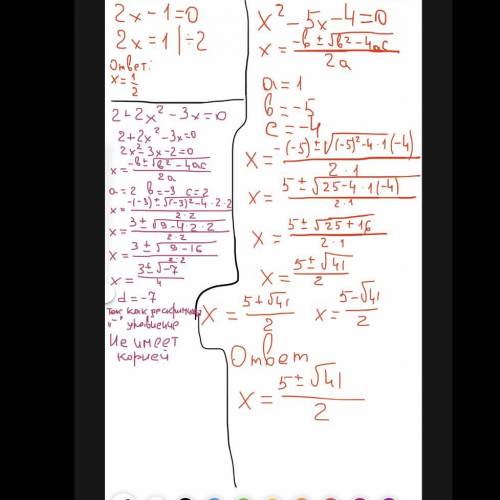 2x-1=0
2x=1 | ÷2
Ответ:
x=1/2
2+2x²-3x=0
2+2x²-3x=0
2x²-3x-2=0
x=-b±√b²-4ac/2a
a=2 b=-3 c=2
x=-(-3)±√(-3)²-4·2·2/2·2
x=3±√9-4·2·2/2·2
x=3±√9-16/2·2
x=3±√-7/4
d=-7
Так как
"-" уравнение
Не имеет
корней
x²-5x-4=0
x=-b±√b²-4ac/2a
a=1
b=-5
c=-4
x=-(-5)±√(-5)²-4·1·(-4)/2·1
x=5±√25-4·1(-4)/2·1
x=5±√25+16/2·1
x=5±√41/2
x=5+√41/2 x=5-√41/2
Ответ
x=5±√41/2